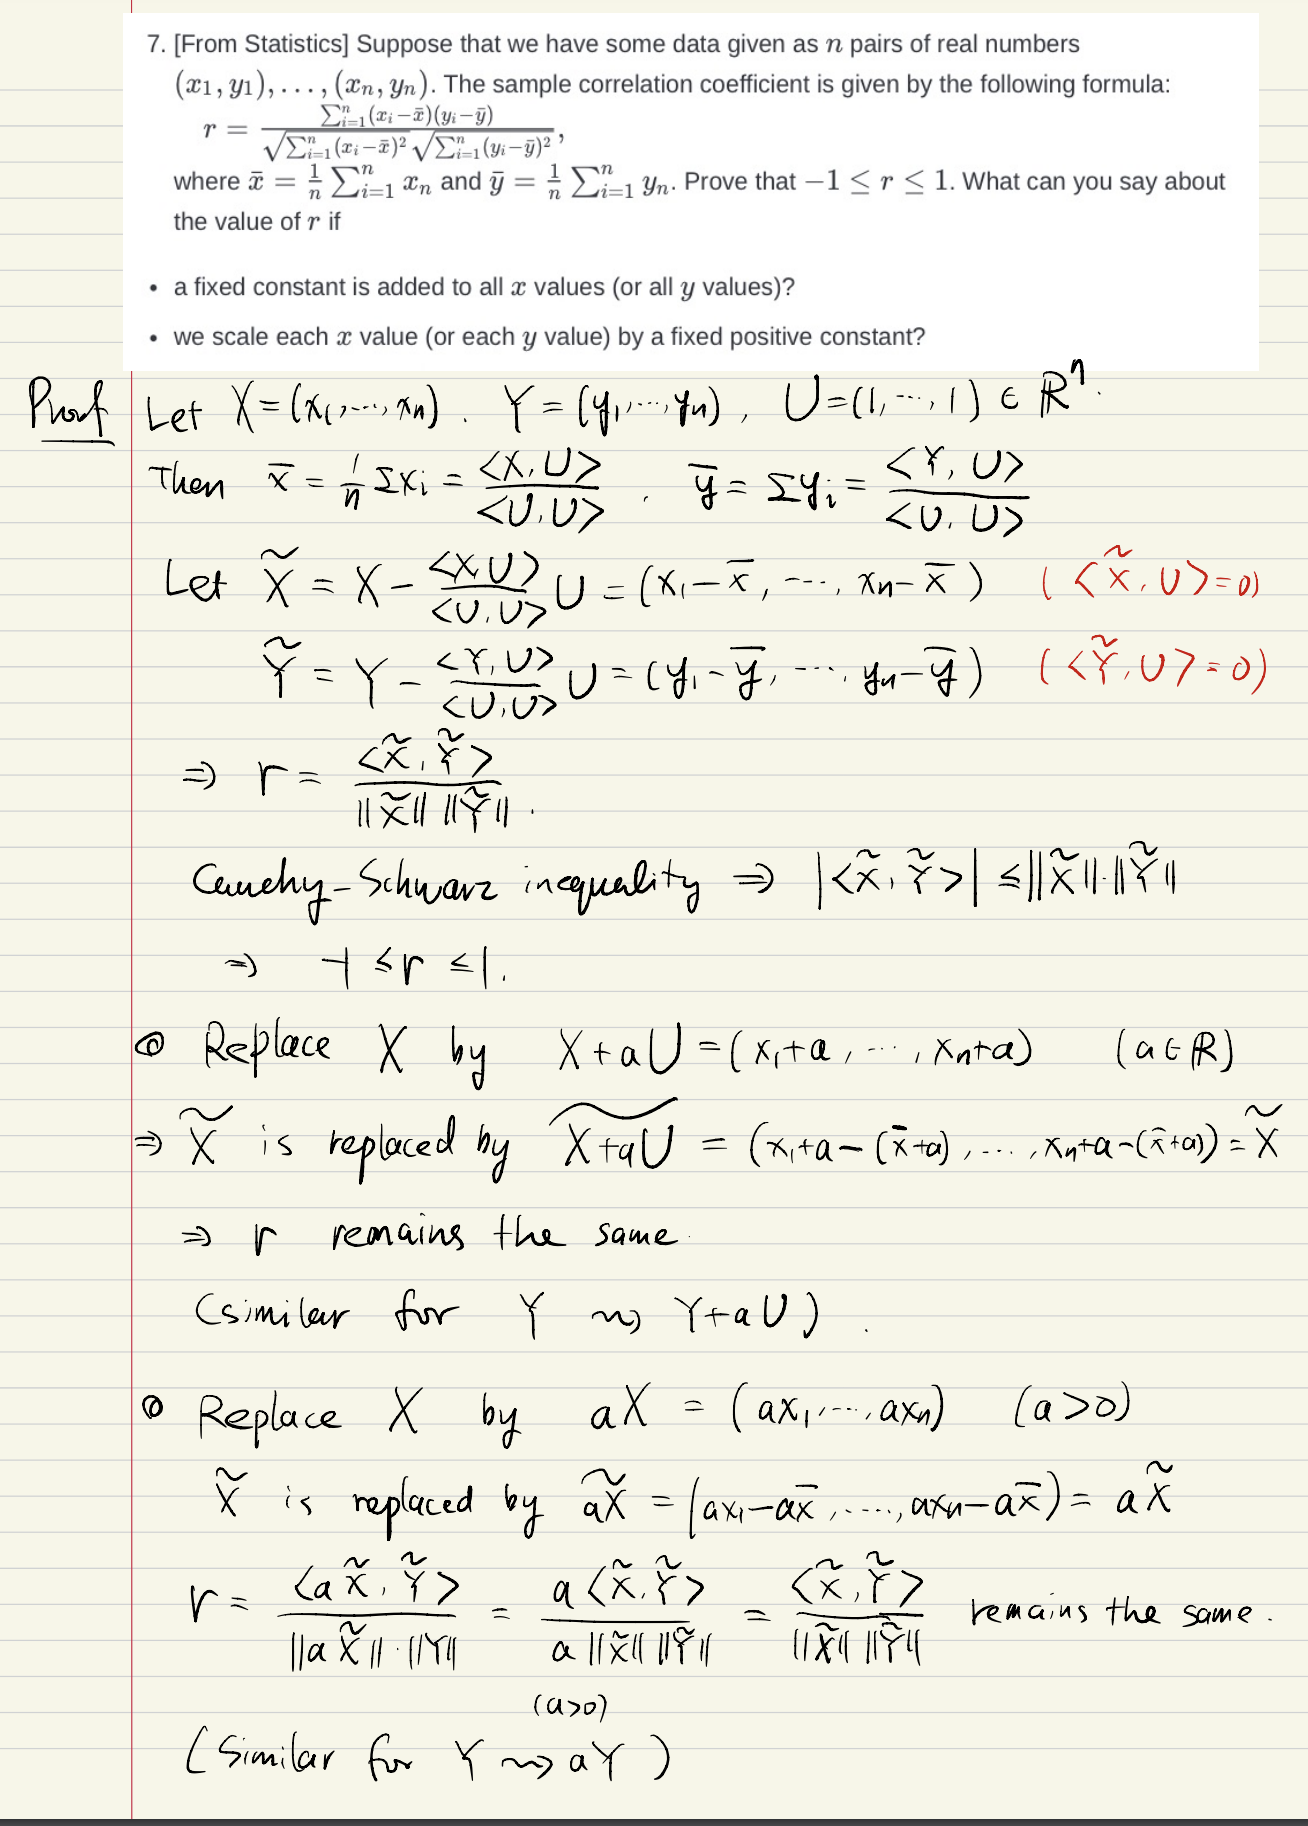 7. [From Statistics] Suppose that we have some data given as n pairs of real numbers
(x₁, y₁), . . . , (xₙ, yₙ). The sample correlation coefficient is given by the following formula:
r = \frac{∑_{i=1}^{n}(x_i−x̄)(y_i−ȳ)}{\sqrt{∑_{i=1}^{n}(x_i−x̄)²}\sqrt{∑_{i=1}^{n}(y_i−ȳ)²}},
where x̄ = \frac{1}{n} ∑_{i=1}^{n} xₙ and ȳ = \frac{1}{n} ∑_{i=1}^{n} yₙ. Prove that −1 ≤ r ≤ 1. What can you say about
the value of r if
• a fixed constant is added to all x values (or all y values)?
• we scale each x value (or each y value) by a fixed positive constant?
Proof Let X = (x₁, ..., xₙ). Y = (y₁, ..., yₙ), U = (1, ..., 1) ∈ ℝⁿ.
Then x̄ = \frac{1}{n} Σx_i = \frac{<X, U>}{<U, U>}. ȳ = Σy_i = \frac{<Y, U>}{<U, U>}
Let X̃ = X − \frac{<X, U>}{<U, U>} U = (x₁ − x̄, ..., xₙ − x̄) (<X̃, U> = 0)
Ỹ = Y − \frac{<Y, U>}{<U, U>} U = (y₁ − ȳ, ..., yₙ − ȳ) (<Ỹ, U> = 0)
⇒ r = \frac{<X̃, Ỹ>}{||X̃|| ||Ỹ||}.
Cauchy-Schwarz inequality ⇒ |<X̃, Ỹ>| ≤ ||X̃||·||Ỹ||
⇒ −1 ≤ r ≤ 1.
• Replace X by X + aU = (x₁+a, ..., xₙ+a) (a ∈ ℝ)
⇒ X̃ is replaced by \widetilde{X+aU} = (x₁+a−(x̄+a), ..., xₙ+a−(x̄+a)) = X̃
⇒ r remains the same.
(similar for Y ⇝ Y+aU).
• Replace X by aX = (ax₁, ..., axₙ) (a > 0)
X̃ is replaced by \widetilde{aX} = (ax₁−ax̄, ...., axₙ−ax̄) = aX̃
r = \frac{<aX̃, Ỹ>}{||aX̃||·||Y||} = \frac{a<X̃, Ỹ>}{a||X̃|| ||Ỹ||} = \frac{<X̃, Ỹ>}{||X̃|| ||Ỹ||} remains the same.
(a>0)
(Similar for Y ⇝ aY)